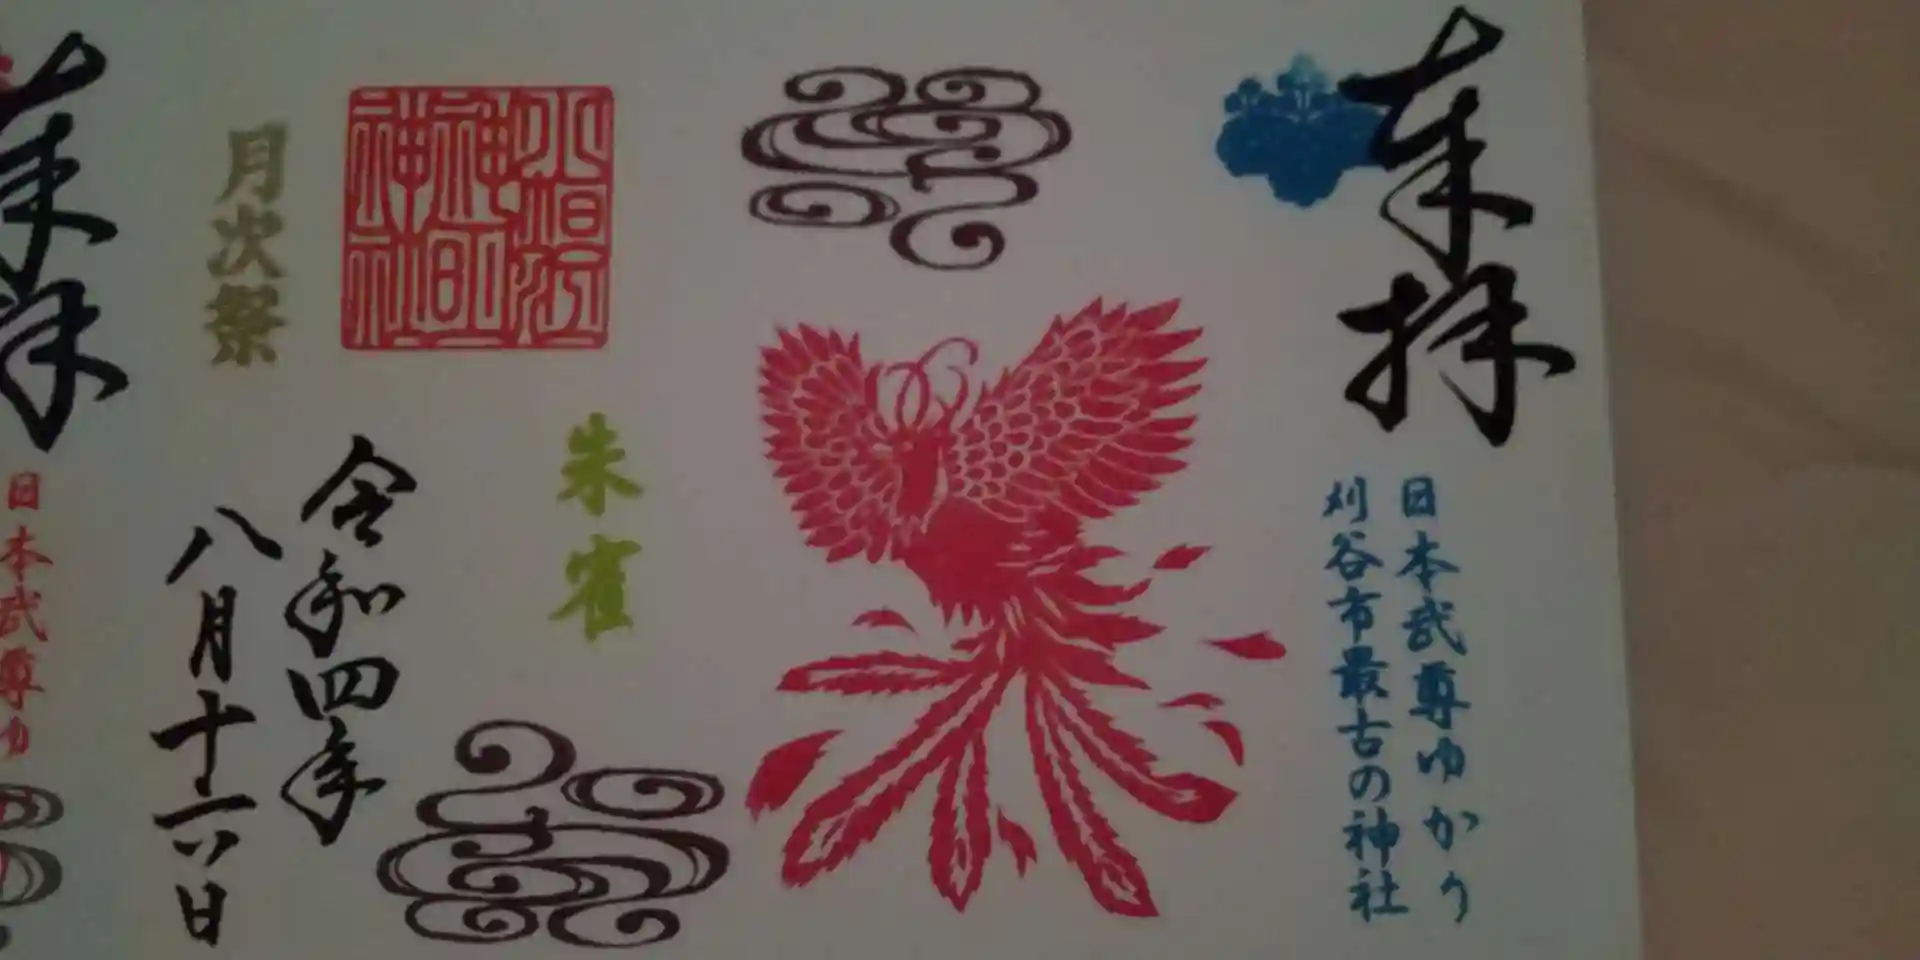 奉拝
日本武尊ゆかり
刈谷市最古の神社
朱雀
神明
神社
月次祭
令和四年
八月十六日
奉拝
日本武尊